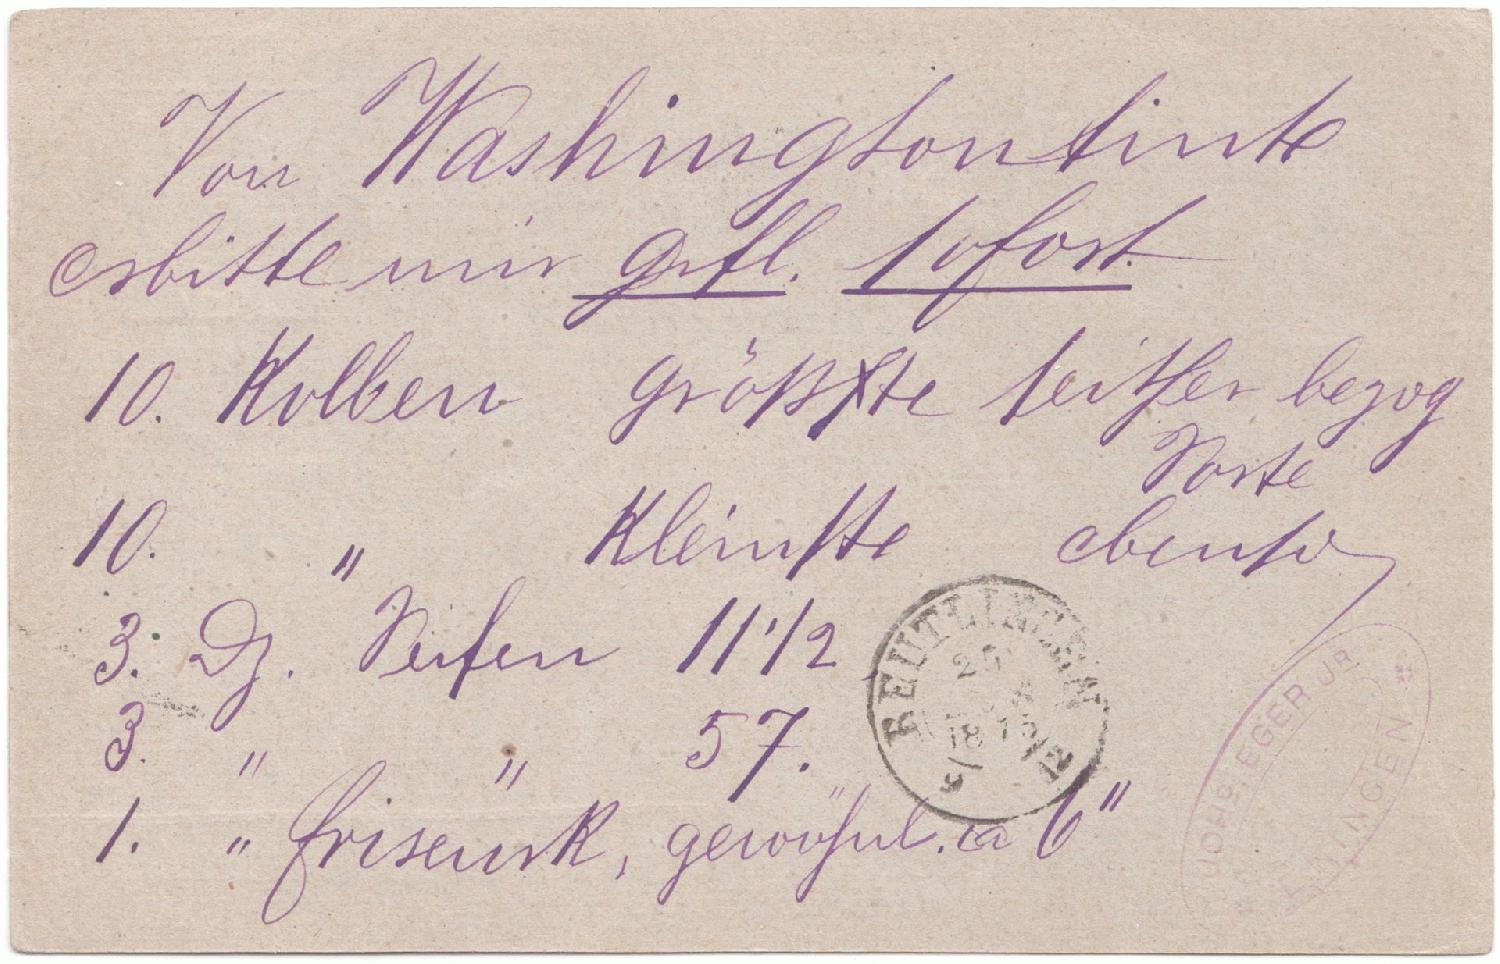 Von Washingtontinte
erbitte mir gefl. sofort.
10. Kolben größte seither bezog
Sorte
10. " Kleinste ebenso
3. Dz. Seifen 11 1/2
3. " " 57.
1. " Friseurk, gewöhnl. a 6"
REUTLINGEN
25
18 75
JOHS EGER JR.